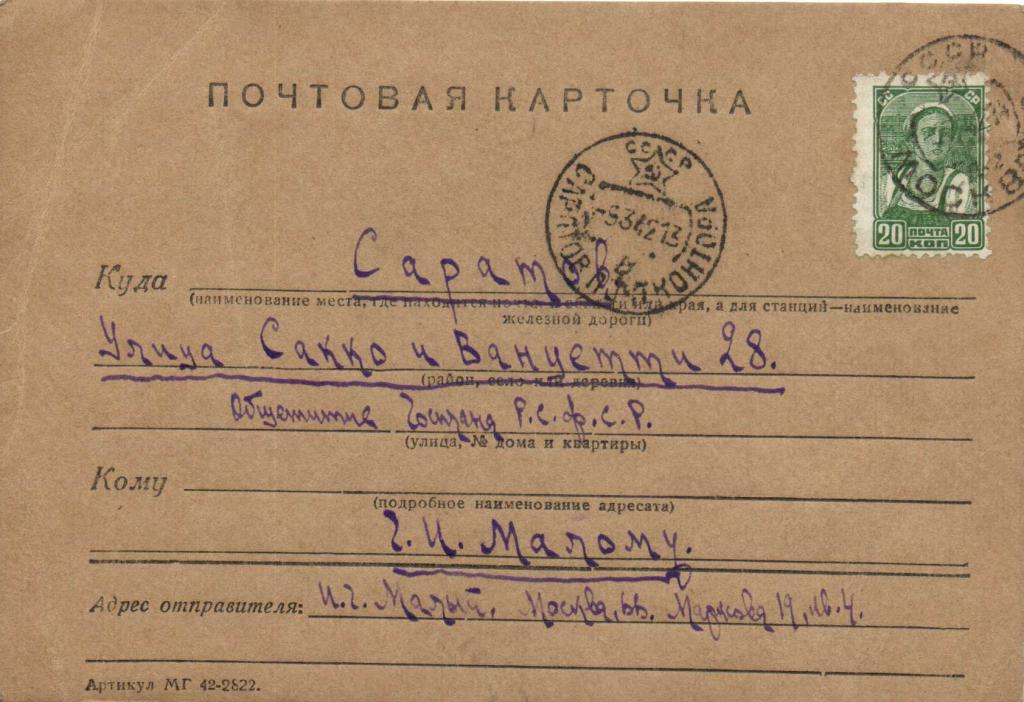 ПОЧТОВАЯ КАРТОЧКА
СССР
МОСКВА
СС СР
20 ПОЧТА КОП 20
СССР
САРАТОВ ПОЧТ. КОНТОРА
-9342 13
Куда Саратов
(наименование места, где находится почта и области или края, а для станций—наименование железной дороги)
Улица Сакко и Ванцетти 28.
(район, село или деревня)
Общежитие Госплана Р.С.Ф.С.Р.
(улица, № дома и квартиры)
Кому
(подробное наименование адресата)
Г. И. Малому.
Адрес отправителя: И. Г. Малый. Москва, 66. Маркова 19, кв. 4.
Артикул МГ 42-2822.